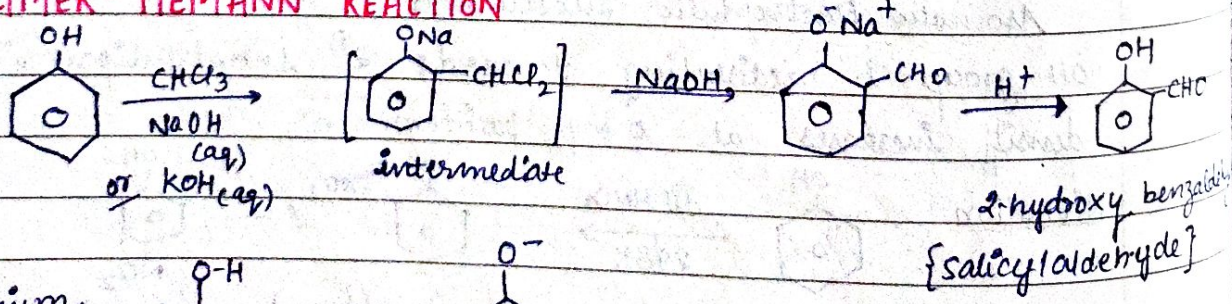 REIMER TIEMANN REACTION
OH
CHCl3
NaOH
(aq)
or KOH(aq)
ONa
CHCl2
intermediate
NaOH
O-Na+
CHO
H+
OH
CHO
2-hydroxy benzaldeh
{salicylaldehyde}
O-H
O-